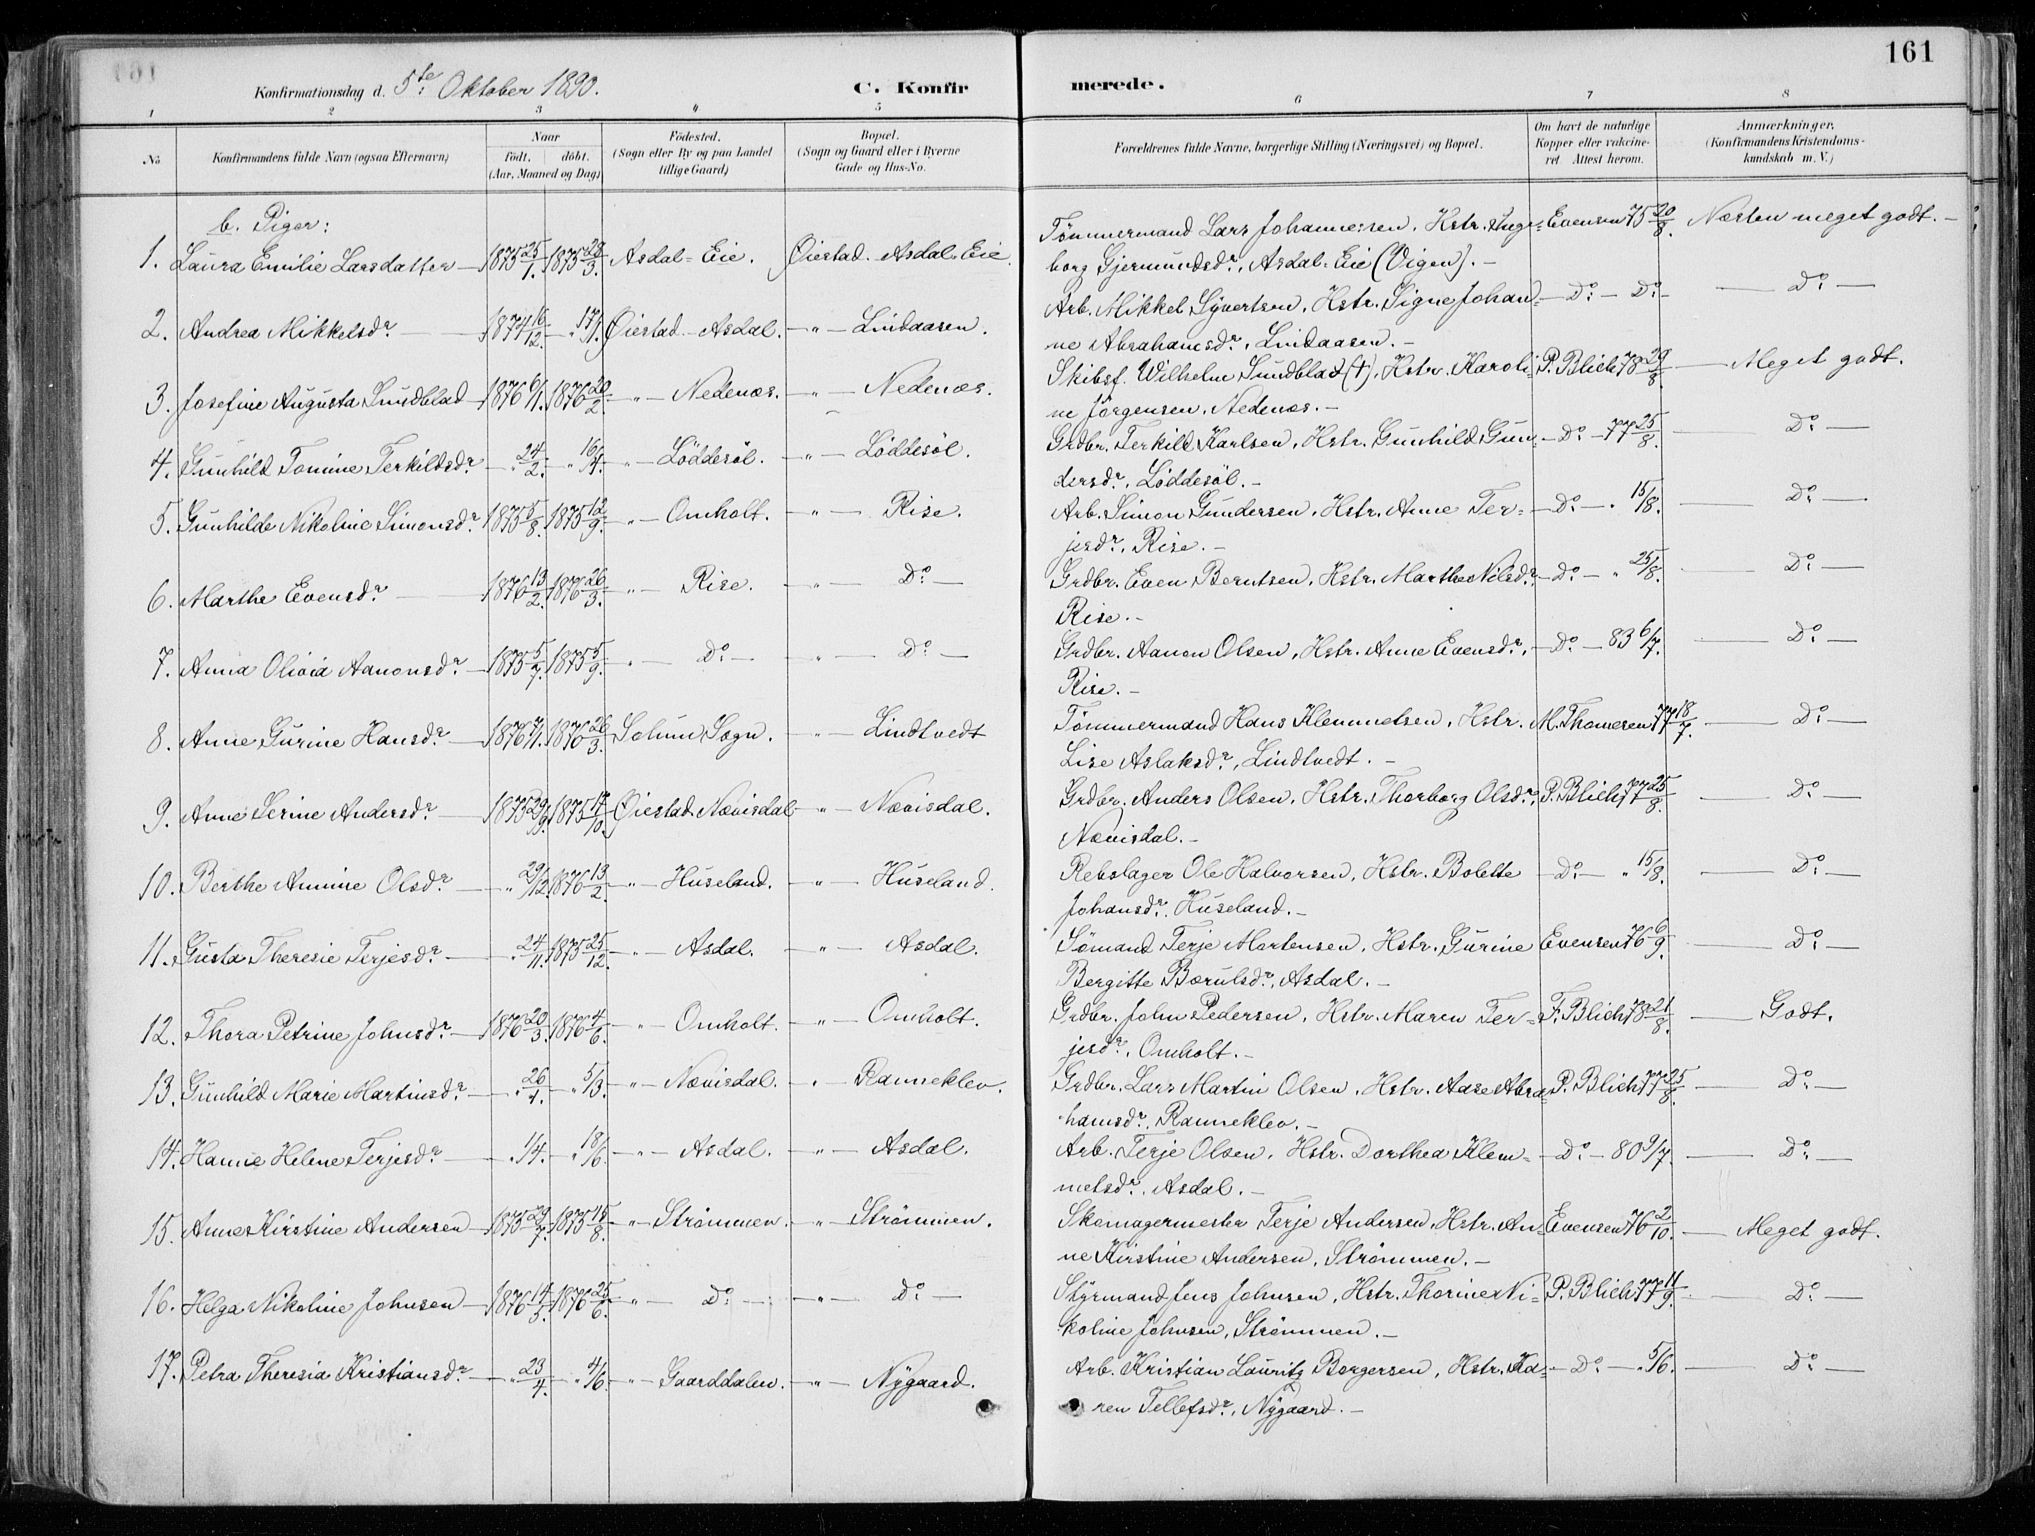 161
Konfirmationsdag d. 5te Oktober 1890.
C. Konfir
merede.
1 2 3 4 5 6 7 8
No
Konfirmandens fulde Navn (ogsaa Efternavn)
Naar
født. døbt.
(Aar, Maaned og Dag)
Fødested.
(Sogn eller By og paa Landet
tillige Gaard)
Bopæl.
(Sogn og Gaard eller i Byerne
Gade og Hus-No.
Forældrenes fulde Navne, borgerlige Stilling (Næringsvei) og Bopæl.
Om havt de naturlige
Kopper eller vakcine-
ret Attest herom.
Anmærkninger.
(Konfirmandens Kristendoms-
kundskab m. V.)
b. Piger:
1. Laura Emilie Larsdatter 1875 25/1. 1875 28/3. Asdal-Eie. Øiestad. Asdal-Eie. Tømmermand Lars Johannessen, Hstr. Inge- Evensen 75 20/8. Næsten meget godt. –
borg Gjermundsdr., Asdal-Eie (Vigen). –
2. Andrea Mikkelsdr. 1874 16/12. " 17/1. Øiestad Asdal. " Lindaasen. Arb. Mikkel Syvertsen, Hstr. Signe Johan- Do. Do. Do.
ne Abrahamsdr., Lindaasen. –
3. Josefine Augusta Sundblad 1876 6/1. 1876 20/2. " Nedenæs. " Nedenæs. Skibsf. Wilhelm Sundblad (†), Hstr. Karoli- P. Blich 78 29/8. Meget godt.
ne Jörgensen, Nedenæs. –
4. Gunhild Tomine Terkildsdr. " 24/2. " 16/4. " Løddesøl. " Løddesøl. Grdbr. Terkild Karlsen, Hstr. Gunhild Gun- Do. 77 25/8. Do.
dersdr., Løddesøl. –
5. Gunhilde Nikoline Simonsdr. 1875 5/8. 1875 12/9. " Omholt. " Rise. Arb. Simon Gundersen, Hstr. Anne Ter- Do. " 15/8. Do.
jesdr., Rise. –
6. Marthe Evensdr. 1876 13/2. 1876 26/3. " Rise. " Do. Grdbr. Even Berntsen, Hstr. Marthe Nilsdr. Do. " 25/8. Do.
Rise. –
7. Anna Olivia Aanonsdr. 1875 5/7. 1875 5/9. " Do. " Do. Grdbr. Aanon Olsen, Hstr. Anne Evensdr., Do. 83 6/7. Do.
Rise. –
8. Anne Gurine Hansdr. 1876 7/1. 1876 26/3. Solum Sogn. " Lindtvedt Tømmermand Hans Klemmetsen, Hstr. M. Thomesen 77 18/7. Do.
Lise Aslaksdr., Lindtvedt. –
9. Anne Serine Andersdr. 1875 29/9. 1875 17/10. Øiestad Nævisdal " Nævisdal. Grdbr. Anders Olsen, Hstr. Thorborg Olsdr., P. Blich 77 25/8. Do.
Nævisdal. –
10. Berthe Amine Olsdr. " 29/12. 1876 13/2. " Huseland. " Huseland. Rebslager Ole Halvorsen, Hstr. Bolette Do. " 15/8. Do.
Johansdr. Huseland. –
11. Gusta Theresie Terjesdr. " 24/11. 1875 25/12. " Asdal. " Asdal. Sømand Terje Martensen, Hstr. Gurine Evensen 76 6/9. Do.
Bergitte Bærulsdr., Asdal. –
12. Thora Petrine Johnsdr. 1876 20/3. 1876 4/6. " Omholt. " Omholt. Grdbr. John Pedersen, Hstr. Maren Ter- F. Blich 78 21/8. Godt.
jesdr., Omholt. –
13. Gunhild Marie Martinsdr. " 26/1. " 5/3. " Nævisdal. " Ranneklev. Grdbr. Lars Martin Olsen, Hstr. Aase Abra- P. Blich 77 25/8. Do.
hamsdr. Ranneklev. –
14. Hanne Helene Terjesdr. " 1/4. " 18/6. " Asdal. " Asdal. Arb. Terje Olsen, Hstr. Dorthea Klem- Do. 80 9/7. Do.
metsdr. Asdal. –
15. Anne Kirstine Andersen 1875 29/7. 1875 15/8. " Strømmen. " Strømmen. Skomagermester Terje Andersen, Hstr. An- Evensen 76 2/10. Meget godt.
ne Kirstine Andersen, Strømmen. –
16. Helga Nikoline Johnsen 1876 14/5. 1876 25/6. " Do. " Do. Styrmand Jens Johnsen, Hstr. Thorine Ni- P. Blich 77 11/9. Do.
koline Johnsen, Strømmen. –
17. Petra Theresia Kristiansdr. " 23/4. " 4/6. " Gaarddalen. " Nygaard. Arb. Kristian Lauritz Borgersen, Hstr. Ka- Do. " 5/6. Do.
ren Tellefsdr., Nygaard. –